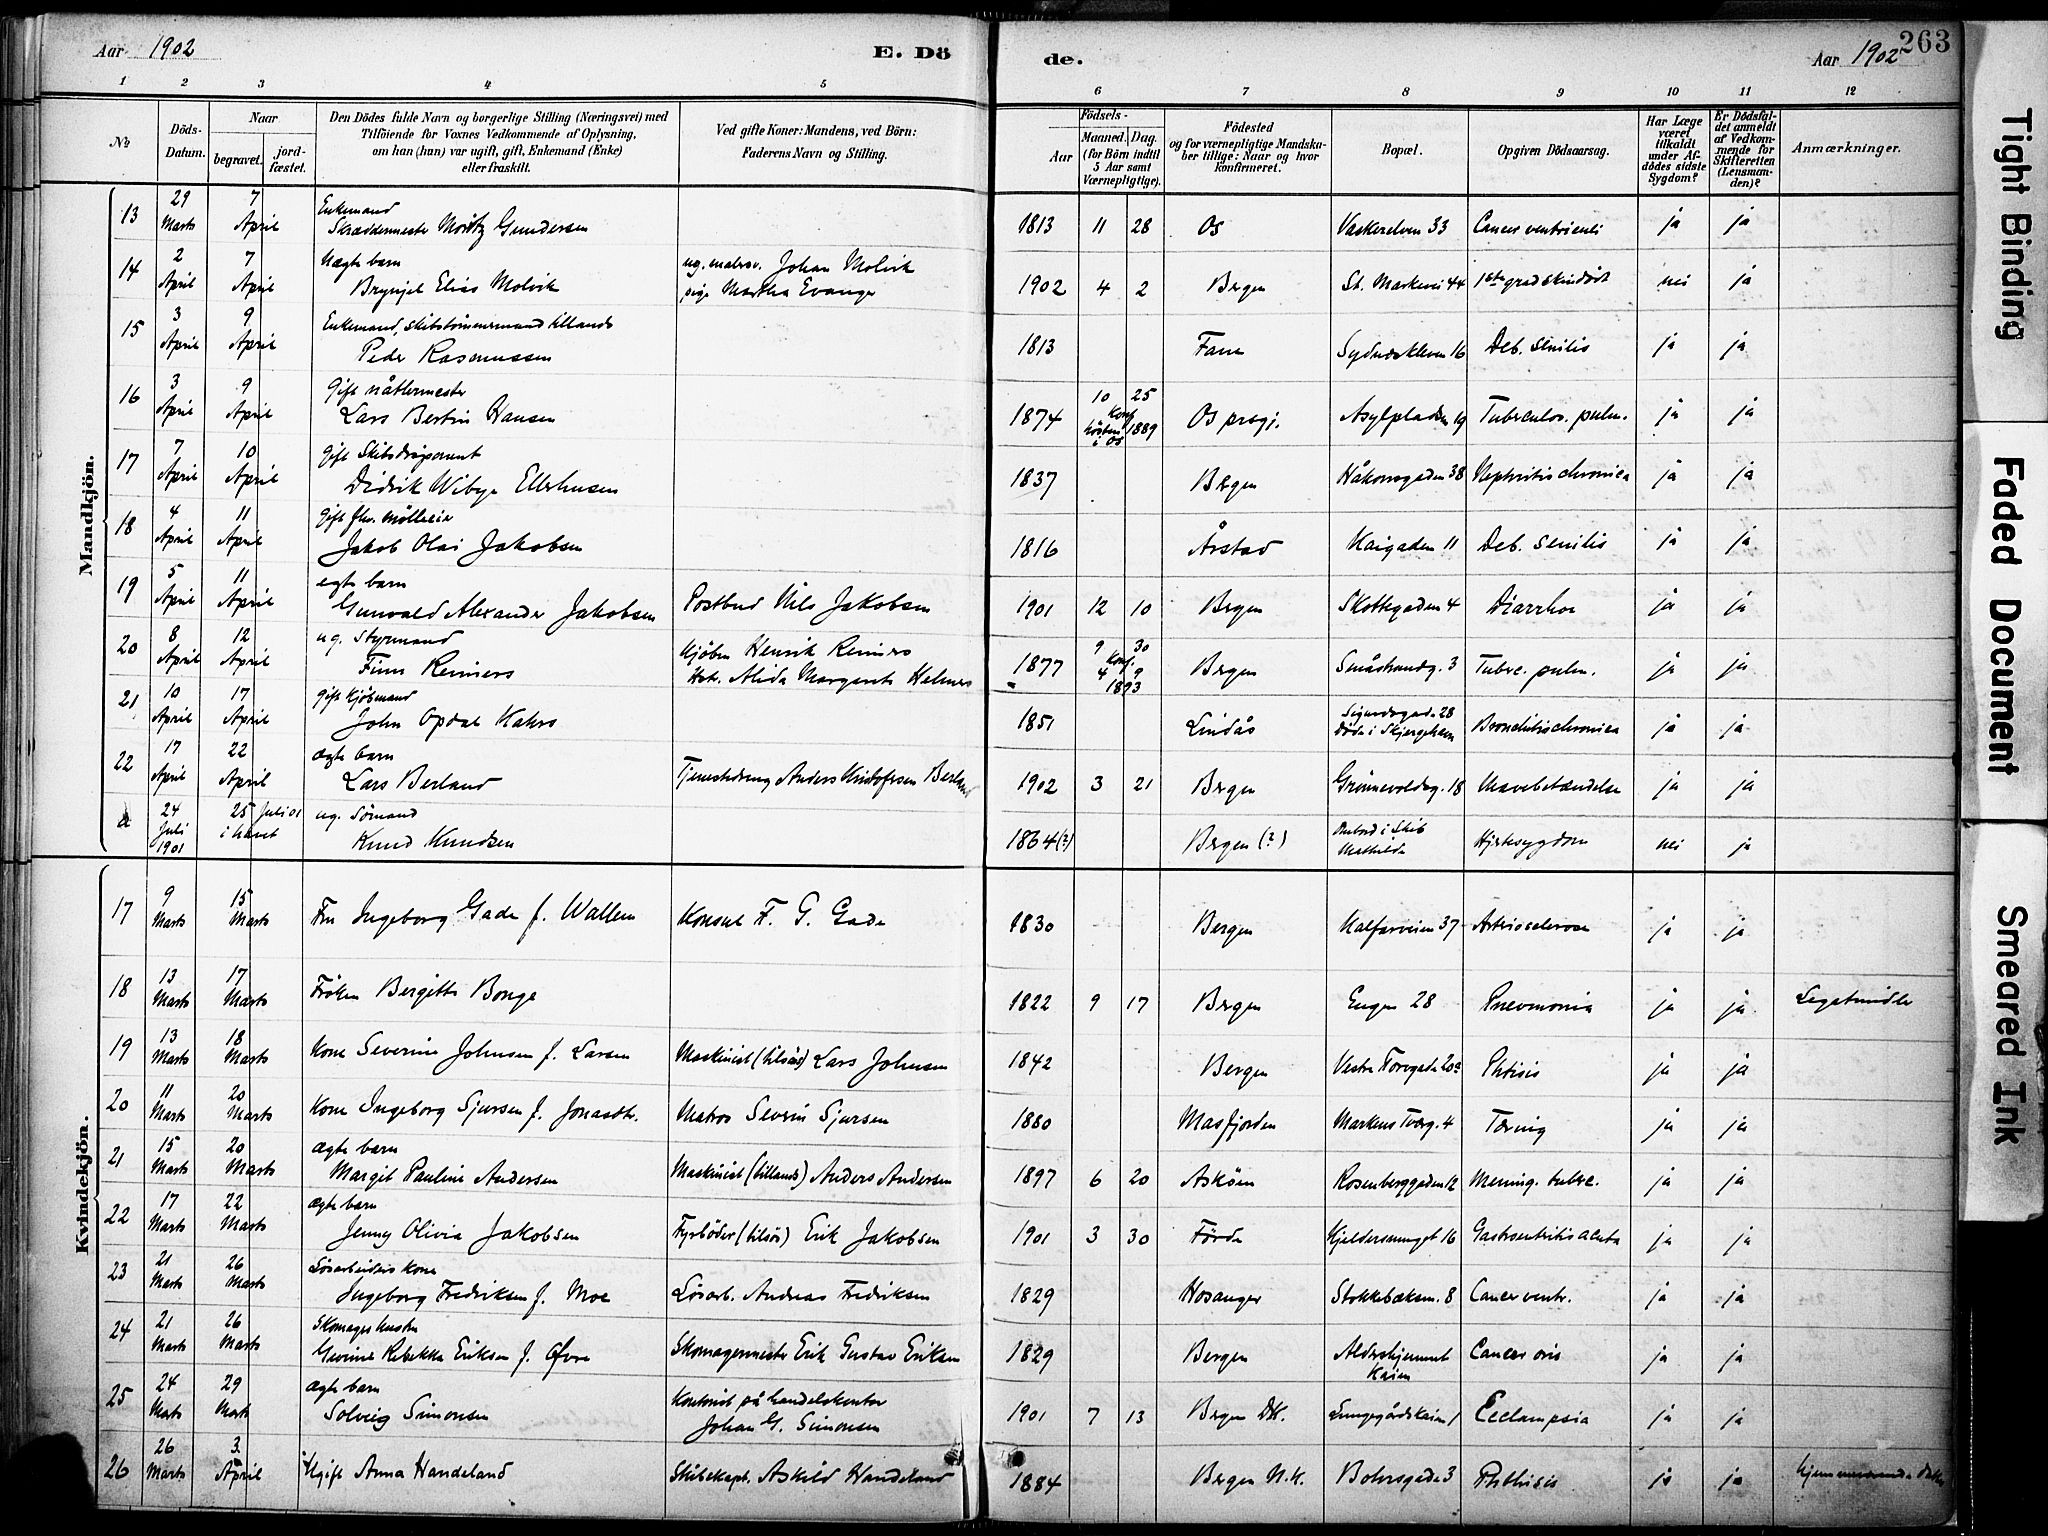 Aar 1902 E. Dö
de. Aar 1902 263
1 2 3 4 5 6 7 8 9 10 11 12
№
Döds-Datum.
Naar
begravet. jordfæstet.
Den Dödes fulde Navn og borgerlige Stilling (Næringsvei) med
Tilföiende for Voxnes Vedkommende af Oplysning,
om han (hun) var ugift, gift, Enkemand (Enke)
eller fraskilt.
Ved gifte Koner: Mandens, ved Börn:
Faderens Navn og Stilling.
Födsels-
Aar Maaned. Dag.
(for Börn indtil
5 Aar samt
Værnepligtige).
Födested
og for værnepligtige Mandska-
ber tillige: Naar og hvor
konfirmeret.
Bopæl.
Opgiven Dödsaarsag.
Har Læge
været
tilkaldt
under Af-
dödes sidste
Sygdom?
Er Dödsfal-
det anmeldt
af Vedkom-
mende for
Skifteretten
(Lensman-
den)?
Anmærkninger.
Mandkjön.
13 29 Marts 7 April Enkemand
Skræddermester Moritz Gundersen 1813 11 28 Os Vaskerelven 33 Cancer ventriculi ja ja
14 2 April 7 April Uægte barn ug. matros. Johan Molvik
Brynjel Elias Molvik pige Martha Evanger 1902 4 2 Bergen St. Markevei 44 1ste grad skindöd nei ja
15 3 April 9 April Enkemand, skibstömmermand tillands
Peder Rasmussen 1813 Fane Sydneskleven 16 Deb. senilis ja ja
16 3 April 9 April Gift nåtlermester
Lars Bertin Hansen 1874 10 25 Konf. Høsten 1889 i Os Os prsgj. Asylpladsen 19 Tuberculos. pulm. ja ja
17 7 April 10 April gift Skibsdispacent
Didrik Wibye Ellerhusen 1837 Bergen Håkonsgaden 38 Nephritis chronica ja ja
18 4 April 11 April gift fhv. mölleeier
Jakob Olai Jakobsen 1816 Årstad Kaigaden 11 Deb. senilis ja ja
19 5 April 11 April egte barn
Gunvald Alexander Jakobsen Postbud Nils Jakobsen 1901 12 10 Bergen Skottegaden 4 Diarrhoe ja ja
20 8 April 12 April ug. Styrmand Kjöbm Henrik Reimers
Finn Reimers Hst. Alida Margrete Helmers 1877 9 30 Konf. 4 9 1893 Bergen Småstrandg. 3 Tuberc. pulm. ja ja
21 10 April 17 April gift Kjöbmand
John Opdal Kahrs 1851 Lindås Sigurdsgad. 28
Döde i Skjergehavn Bronchitis chronica ja ja
22 17 April 22 April ægte barn
Lars Berland Tjenestedreng Anders Kristofersen Berland 1902 3 21 Bergen Grönnevoldsg. 18 Mavebetændelse ja ja
a 24 Juli 1901 25 Juli 01 i havet ug. Sömand
Knud Knudsen 1864 (?) Bergen (?) Ombord i Skib
Mathilde Hjertesygdom nei ja
Kvindekjön.
17 9 Marts 15 Marts Fru Ingeborg Gade f. Wallem Konsul F. G. Gade 1830 Bergen Kalfarveien 37 Arteriosclerose ja ja
18 13 Marts 17 Marts Fröken Bergitte Bonge 1822 9 17 Bergen Engen 28 Pnevmonia ja ja Legatmidler
19 13 Marts 18 Marts Kone Severine Johnsen f. Larsen Maskinist (tilsös) Lars Johnsen 1842 Bergen Vestre Torvgade 20a Phtisis ja ja
20 11 Marts 20 Marts Kone Ingeborg Sjursen f. Jonasdtr. Matros Severin Sjursen 1880 Masfjorden Markens Tverg. 4 Tæring ja ja
21 15 Marts 20 Marts ægte barn
Margit Pauline Andersen Maskinist (tillands) Anders Andersen 1897 6 20 Asköen Rosenberggaden 12 Mening. tuberc. ja ja
22 17 Marts 22 Marts ægte barn
Jenny Olivia Jakobsen Fyrböder (tilsös) Erik Jakobsen 1901 3 30 Förde Kjeldersmuget 16 Gastroentritis acuta ja ja
23 21 Marts 26 Marts Lösarbeiders kone
Ingeborg Fredriksen f. Moe Lösarb. Andreas Fredriksen 1829 Hosanger Stokkebæksm. 8 Cancer ventr. ja ja
24 21 Marts 26 Marts Skomager hustru
Gurine Rebekka Eriksen f. Øvre Skomagermester Erik Gustav Eriksen 1829 Bergen Alderskjemmet
Kaien Cancer oris ja ja
25 24 Marts 29 Marts ægte barn Kontorist på handelskontor
Solveig Simonsen Johan G. Simonsen 1901 7 13 Bergen DK. Lungegårdskaien 1 Eclampsia ja ja
26 26 Marts 3 April Ugift Anna Handeland Skibskapt. Askild Handeland 1884 Bergen N.K. Bohrsgade 3 Phthisis ja ja
Tight Binding
Faded Document
Smeared Ink